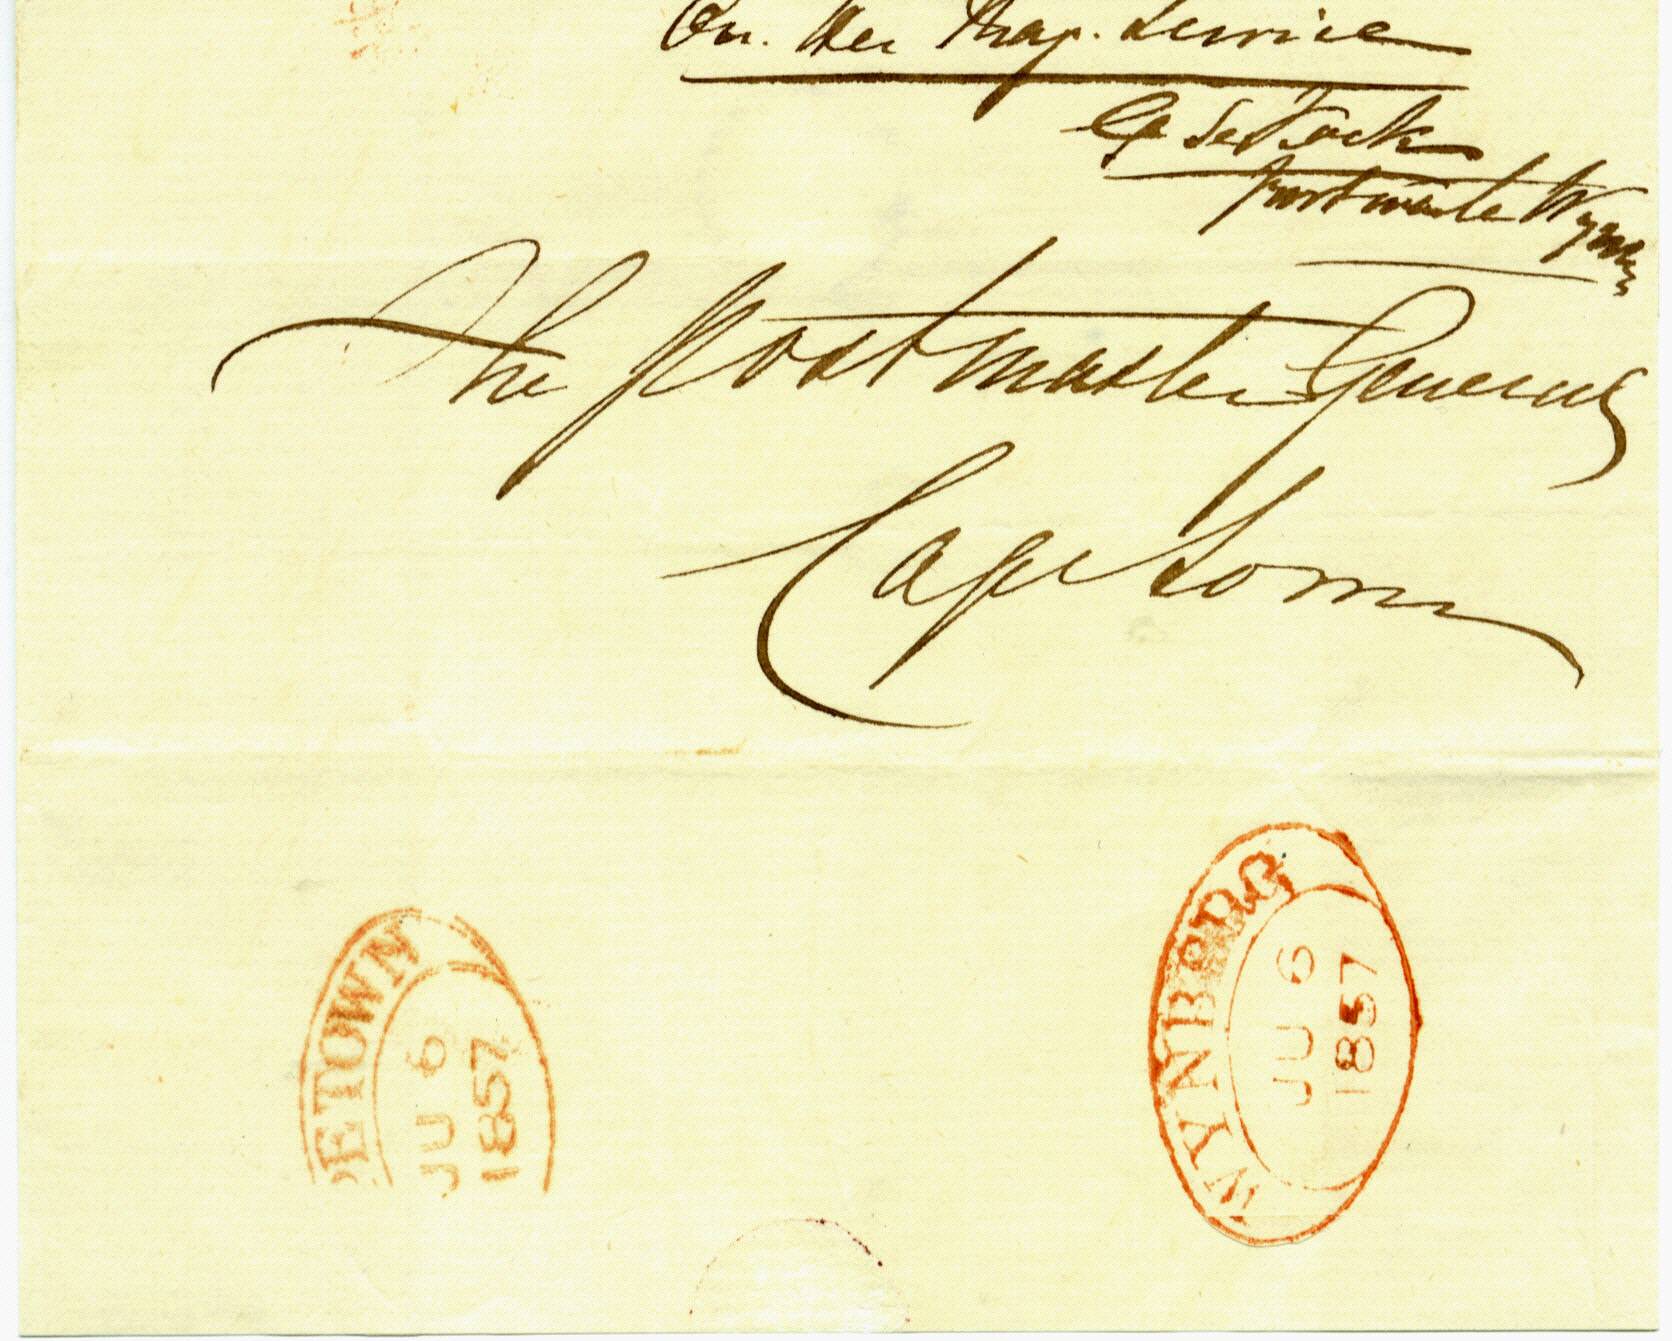 On. Her Maj. Service
Postmaster Wynbg
The Postmaster General
Cape Town
ETOWN
JU 6
1857
WYNBERG
JU 6
1857